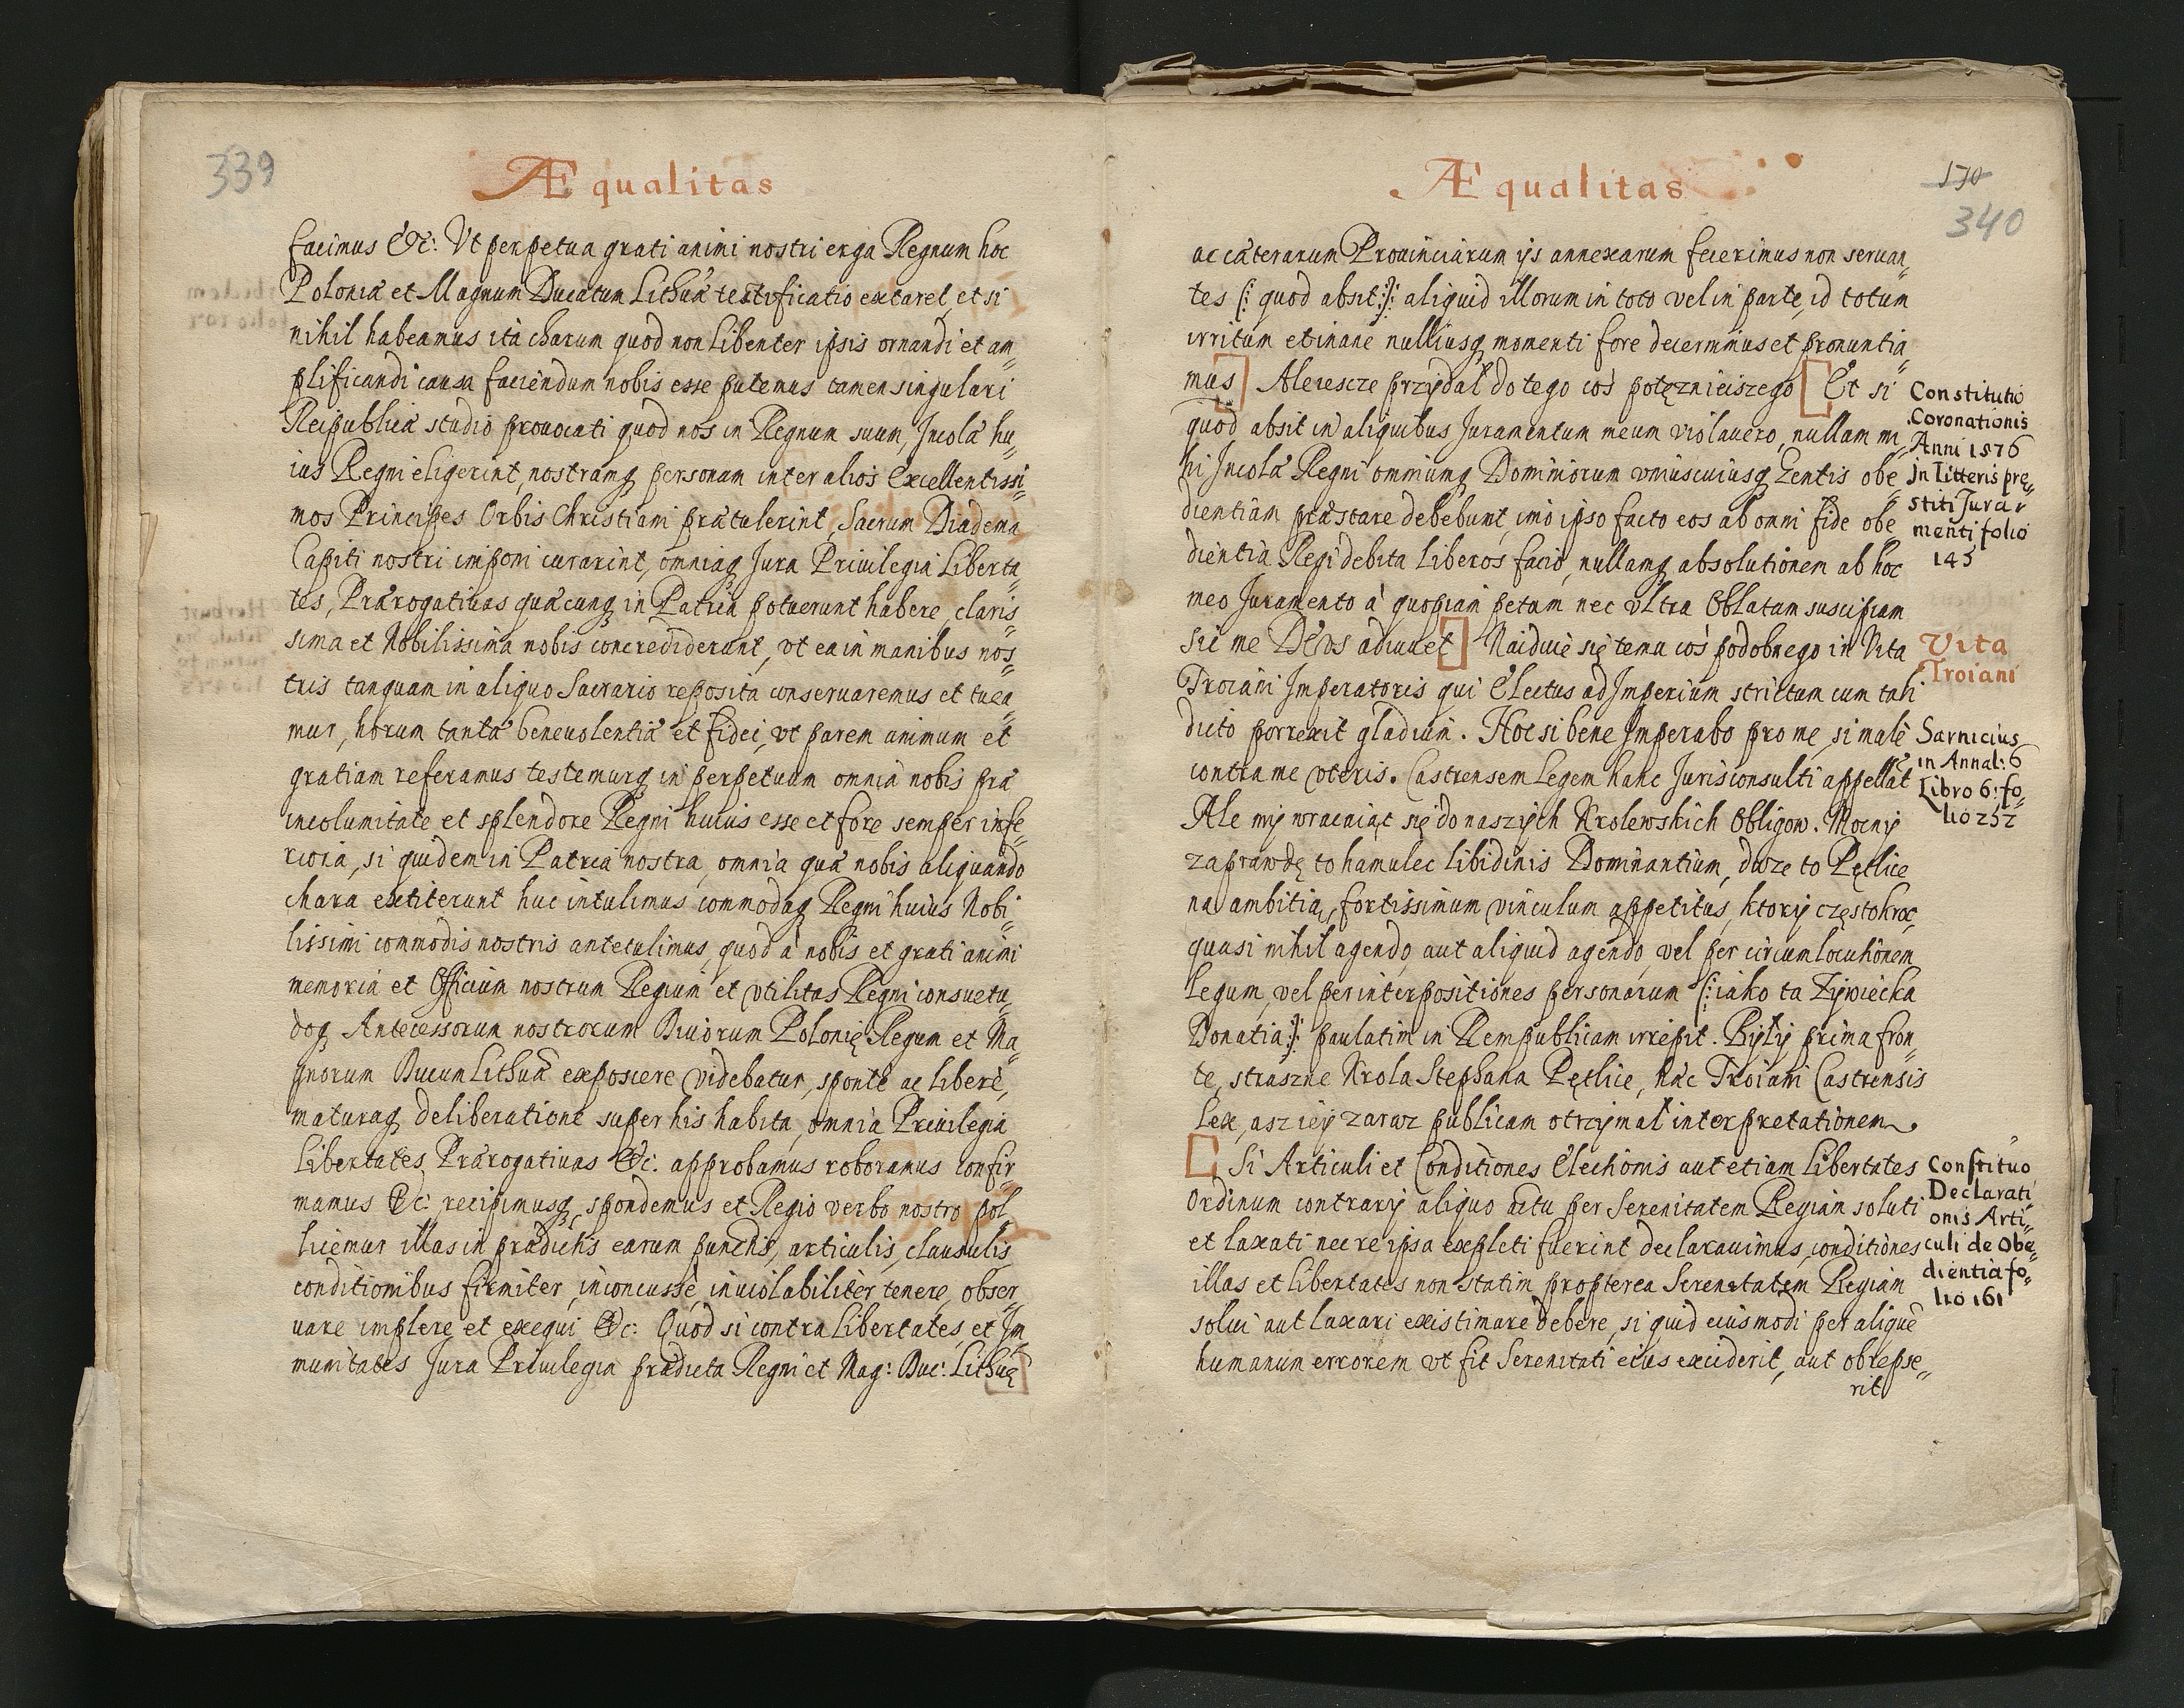 339
Æqualitas
facimus &c: Vt perpetua grati animi nostri erga Regnum hoc
Poloniæ et Magnum Ducatum Lithuæ testificatio extaret, et si
nihil habeamus ita charum quod non libenter ipsis ornandi et am„
plificandi causa faciendum nobis esse putemus tamen singulari
Reipublicæ studio prouocati quod nos in Regnum suum, Jncolæ hu„
ius Regni eligerint, nostramq personam inter alios Excellentissi„
mos Principes Orbis Christiani prætulerint, Sacrum Diadema
Capiti nostri imponi curarint, omniaq Jura Priuilegia Liberta„
tes, Prærogatiuas quæcunq in Patria potuerunt habere, claris„
sima et Nobilissima nobis concrediderunt, vt ea in manibus nos„
tris tanquam in aliquo Sacrario reposita conseruaremus et tuea„
mur, horum tantæ beneuolentiæ et fidei, vt parem animum et
gratiam referamus testemurq in perpetuum omnia nobis præ
incolumitate et splendore Regni huius esse et fore semper infe„
riora, si quidem in Patria nostra, omnia quæ nobis aliquando
chara extiterunt huc intulimus commodaq Regni huius Nobi„
lissimi commodis nostris antetulimus, quod à nobis et grati animi
memoria et Officium nostrum Regium et vtilitas Regni consuetu„
doq Antecessorum nostrorum Diuorum Polonię Regum et Ma„
gnorum Ducum Lithuæ exposcere videbatur, sponte ac liberè,
maturaq deliberatione super his habita, omnia Priuilegia
Libertates Prærogatiuas &c. approbamus roboramus confir„
mamus &c: recipimusq, spondemus et Regio verbo nostro pol„
licemur illas in prædictis earum punctis, articulis, clausulis
conditionibus firmiter, inconcussè, inuiolabiliter tenere, obser„
uare implere et exequi &c: Quod si contra Libertates, et Jm„
munitates Jura Priuilegia prædicta Regni et Mag: Duc: Lithuę
Æqualitas
170
340
ac cæterarum Prouinciarum ijs annexarum fecerimus non seruan„
tes (: quod absit :) aliquid illorum in toto vel in parte, id totum
irritum et inane nulliusq momenti fore decernimus et pronuntia„
mus] Ale iescze przydał do tego coś potęznieiszego [Et si
quod absit in aliquibus Juramentum meum violauero, nullam mi„
hi Jncolæ Regni omniumq Dominiorum vniuscuiusq Gentis obe„
dientiam præstare debebunt, imo ipso facto eos ab omni fide obe„
dientia Regi debita liberos facio, nullamq absolutionem ab hoc
meo Juramento à quopiam petam nec vltra Oblatam suscipiam
Sic me Devs adiuuet] Naiduie się temu coś podobnego in Vita
Troiani Jmperatoris qui Electus ad Jmperium strictum cum tali
dicto porrexit gladium. Hoc si bene Jmperabo pro me, si malè
contra me vteris. Castrensem Legem hanc Jurisconsulti appellāt
Ale my wracaiąc się do naszych Krolewskich Obligow. Mocny
zaprawdę to hamulec libidinis Dominantium, duze to Pętlice
na ambitią, fortissimum vinculum appetitus, ktory częstokroc„
quasi nihil agendo, aut aliquid agendo, vel per circumlocutionem
Legum, vel per interpositiones personarum (: iako ta Zywiecka
Donatia :) paulatim in Rempublicam irrepit. Były prima fron„
te, straszne Krola Stephana Pętlice, hæc Troiani Castrensis
Lex, asz iey zaraz publicam otrzymał interpretationem.
[ Si Articuli et Conditiones Electionis aut etiam Libertates
Ordinum contrarij aliquo actu per Serenitatem Regiam soluti
et laxati nec re ipsa expleti fuerint declarauimus, conditiones
illas et libertates non statim propterea Serenitatem Regiam
solui aut laxari existimare debere, si quid eiusmodi per aliquē
humanum errorem vt fit Serenitati eius exciderit, aut obrepse„
rit
Constitutio
Coronationis
Anni 1576
Jn Litteris prę„
stiti Jura„
menti folio
145
Vita
Troiani
Sarnicius
in Annal: 6
Libro 6: fo„
lio 252
Constituo
Declarati„
onis Arti„
culi de Obe„
dientia fo„
lio 161